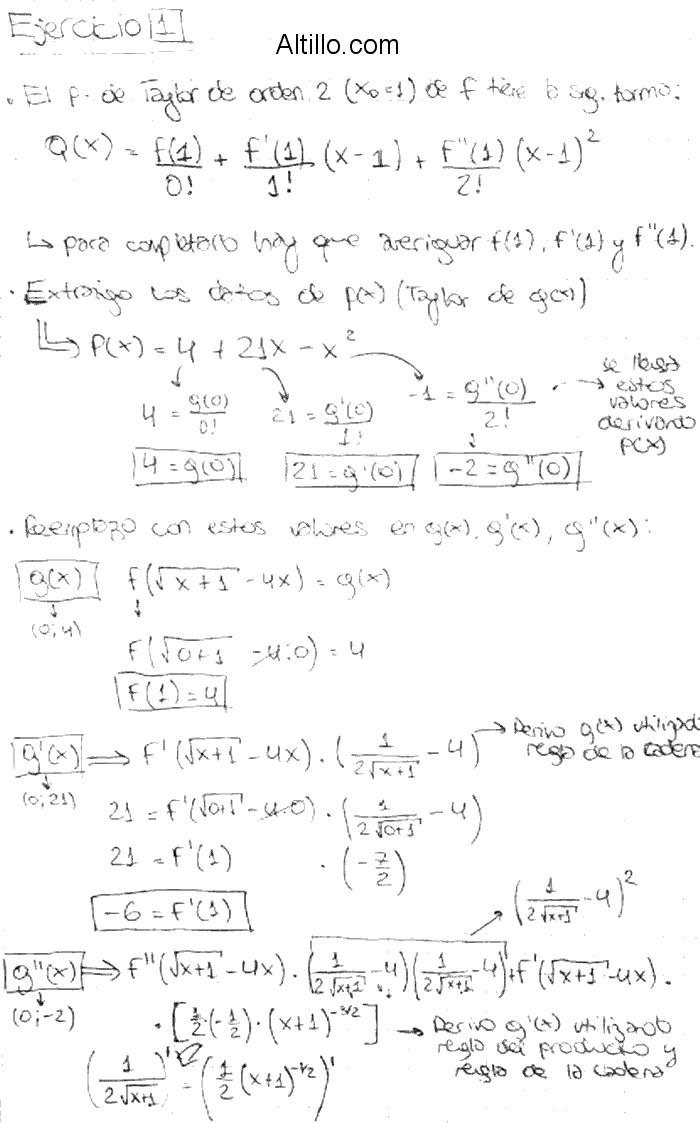 Ejercicio 1
Altillo.com
. El p. de Taylor de orden 2 (x₀=1) de f tiene la sig. forma:
Q(x) = f(1)/0! + f'(1)/1! (x-1) + f''(1)/2! (x-1)²
↳ para completarlo hay que averiguar f(1), f'(1) y f''(1).
· Extraigo los datos de p(x) (Taylor de g(x))
↳ P(x) = 4 + 21x - x²
4 = g(0)/0! 21 = g'(0)/1! -1 = g''(0)/2! → se llega a estos valores derivando P(x)
4 = g(0) 21 = g'(0) -2 = g''(0)
· Reemplazo con estos valores en g(x), g'(x), g''(x):
g(x) f(√(x+1) - 4x) = g(x)
(0; 4)
f(√(0+1) - 4.0) = 4
f(1) = 4
g'(x) ⟹ f'(√(x+1) - 4x) . (1/(2√(x+1)) - 4) → Derivo g(x) utilizando regla de la cadena
(0; 21)
21 = f'(√(0+1) - 4.0) · (1/(2√(0+1)) - 4)
21 = f'(1) . (-7/2)
-6 = f'(1)
(1/(2√(x+1)) - 4)²
g''(x) ⟹ f''(√(x+1) - 4x) . (1/(2√(x+1)) - 4)(1/(2√(x+1)) - 4) + f'(√(x+1) - 4x) .
(0; -2)
· [1/2 · (-1/2) · (x+1)^(-3/2)] → Derivo g'(x) utilizando regla del producto y regla de la cadena
(1/(2√(x+1)))' = (1/2 (x+1)^(-1/2))'